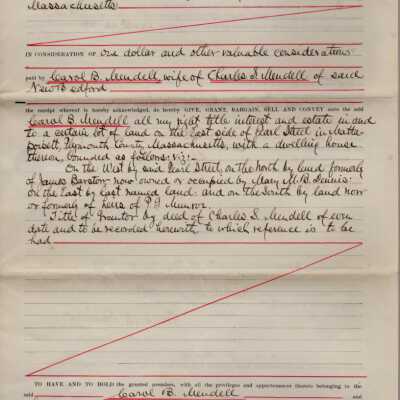 Massachusetts
IN CONSIDERATION OF one dollar and other valuable considerations
paid by Carol B. Mendell wife of Charles S. Mendell of said
New Bedford
the receipt whereof is hereby acknowledged, do hereby GIVE, GRANT, BARGAIN, SELL AND CONVEY unto the said
Carol B. Mendell all my right title interest and estate in and
to a certain lot of land on the East side of Pearl Street in Matta-
poisett, Plymouth County, Massachusetts, with a dwelling house
thereon, bounded as follows: viz:-
On the West by said Pearl Street, on the North by land formerly
of James Barstow now owned or occupied by Mary M. B. Dennis:
on the East by last named land: and on the South by land now
or formerly of heirs of P. J. Munroe.
Title of Grantor by deed of Charles S. Mendell of even
date and to be recorded herewith to which reference is to be
had
TO HAVE AND TO HOLD the granted premises, with all the privileges and appurtenances thereto belonging to the
said Carol B. Mendell and